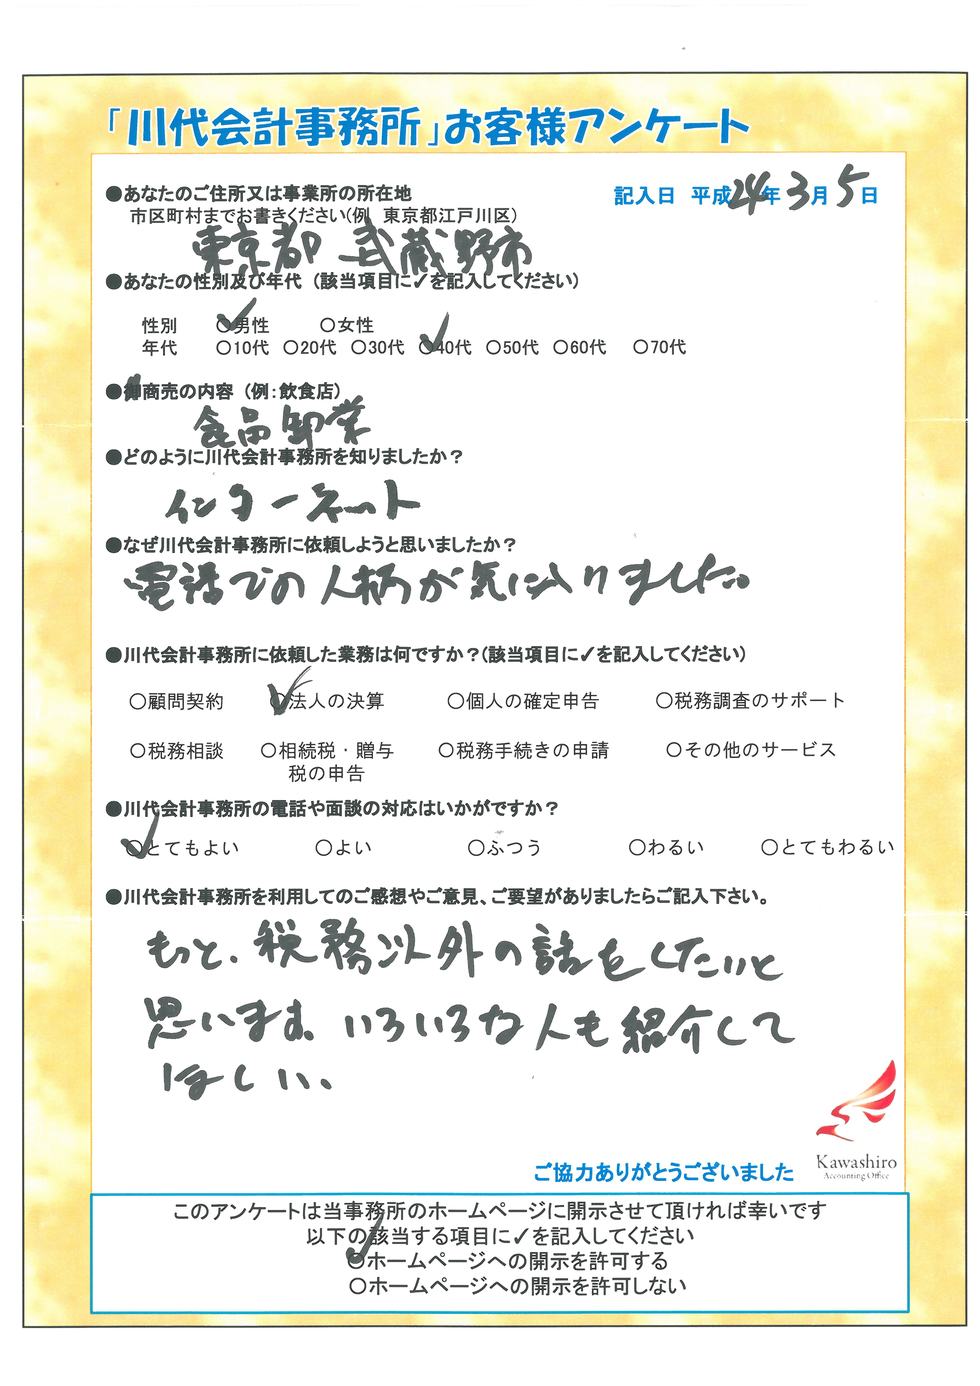 「川代会計事務所」お客様アンケート
●あなたのご住所又は事業所の所在地
記入日 平成24年3月5日
市区町村までお書きください(例 東京都江戸川区)
東京都 武蔵野市
●あなたの性別及び年代 (該当項目に✓を記入してください)
性別 ✓○男性 ○女性
年代 ○10代 ○20代 ○30代 ✓○40代 ○50代 ○60代 ○70代
●御商売の内容 (例:飲食店)
食品卸業
●どのように川代会計事務所を知りましたか?
インターネット
●なぜ川代会計事務所に依頼しようと思いましたか?
電話での人柄が気に入りました。
●川代会計事務所に依頼した業務は何ですか?(該当項目に✓を記入してください)
○顧問契約 ✓○法人の決算 ○個人の確定申告 ○税務調査のサポート
○税務相談 ○相続税・贈与 ○税務手続きの申請 ○その他のサービス
税の申告
●川代会計事務所の電話や面談の対応はいかがですか?
✓○とてもよい ○よい ○ふつう ○わるい ○とてもわるい
●川代会計事務所を利用してのご感想やご意見、ご要望がありましたらご記入下さい。
もっと、税務以外の話をしたいと
思います。いろいろな人も紹介して
ほしい。
Kawashiro
Accounting Office
ご協力ありがとうございました
このアンケートは当事務所のホームページに開示させて頂ければ幸いです
以下の該当する項目に✓を記入してください
✓○ホームページへの開示を許可する
○ホームページへの開示を許可しない